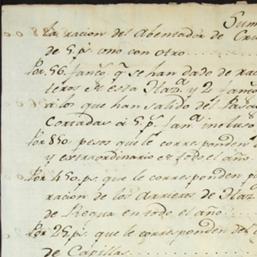 Sum
La racion del Abentador de
de 5 p.s uno con otro
Por 56. faneg.s q.e se han dado de rac
teros en esta Haz.a y 2 faneg
a los que han salido del
Cortadas à 5 p.s fan.a inclusa
Por 850. pesos que le corresponden
y extraordinario en todo el año
Por 450. p.s que le corresponden p
racion de los Arrieros de Haz
de Requa en todo el año
Por 25 p.s que le corresponden del
de Capillas